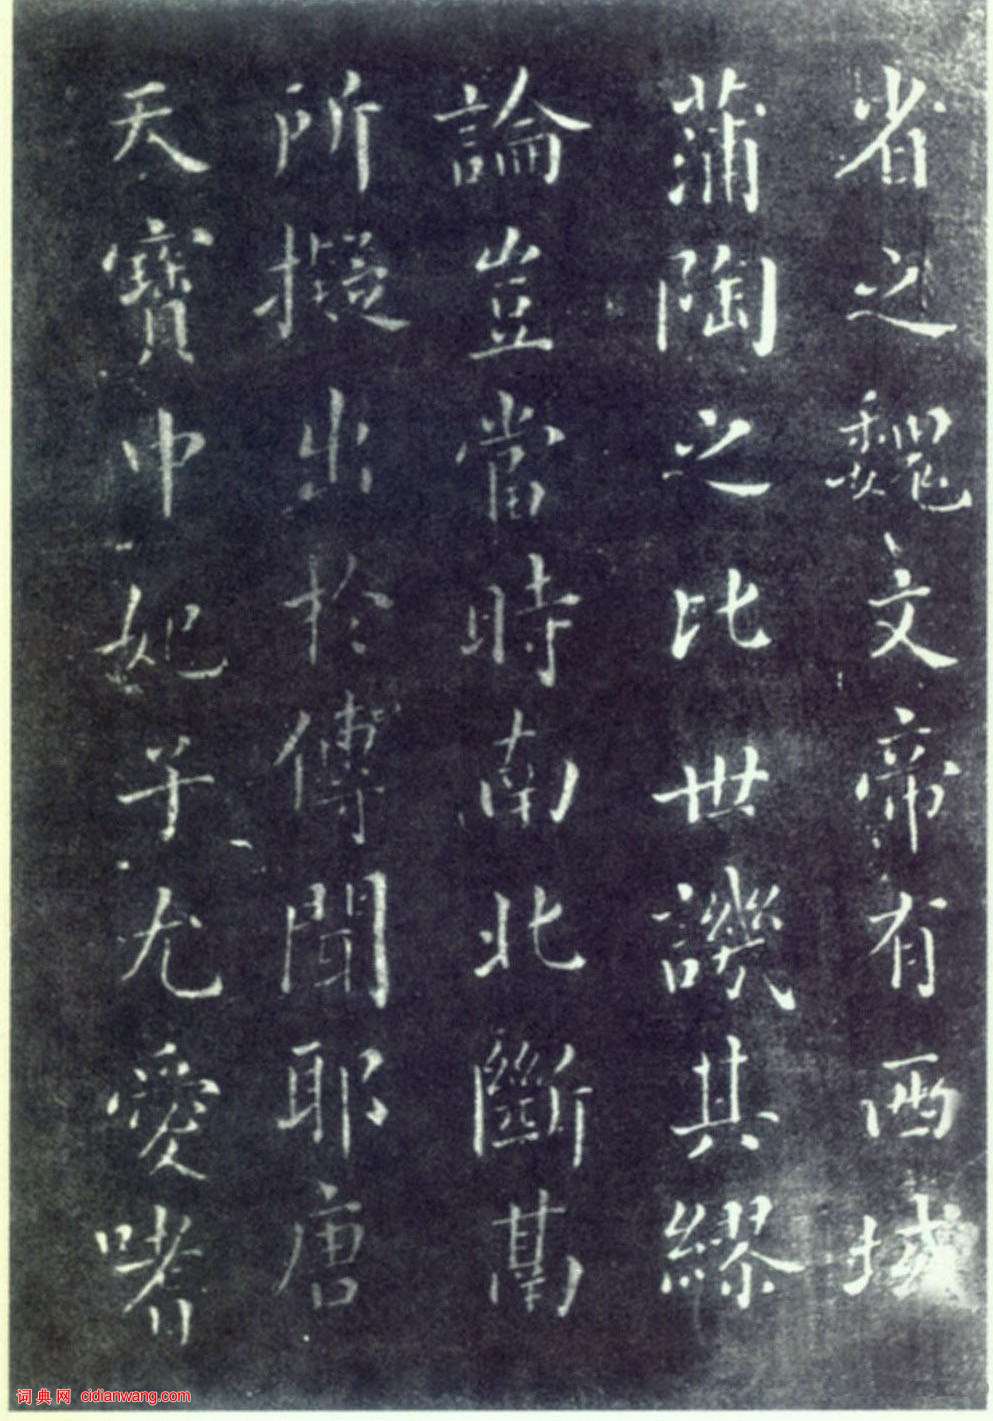 省之魏文帝有西域
蒲陶之比世譏其繆
論豈當時南北斷鬲
所擬出於傳聞耶唐
天寶中妃子尤愛嗜
词典网 cidianwang.com